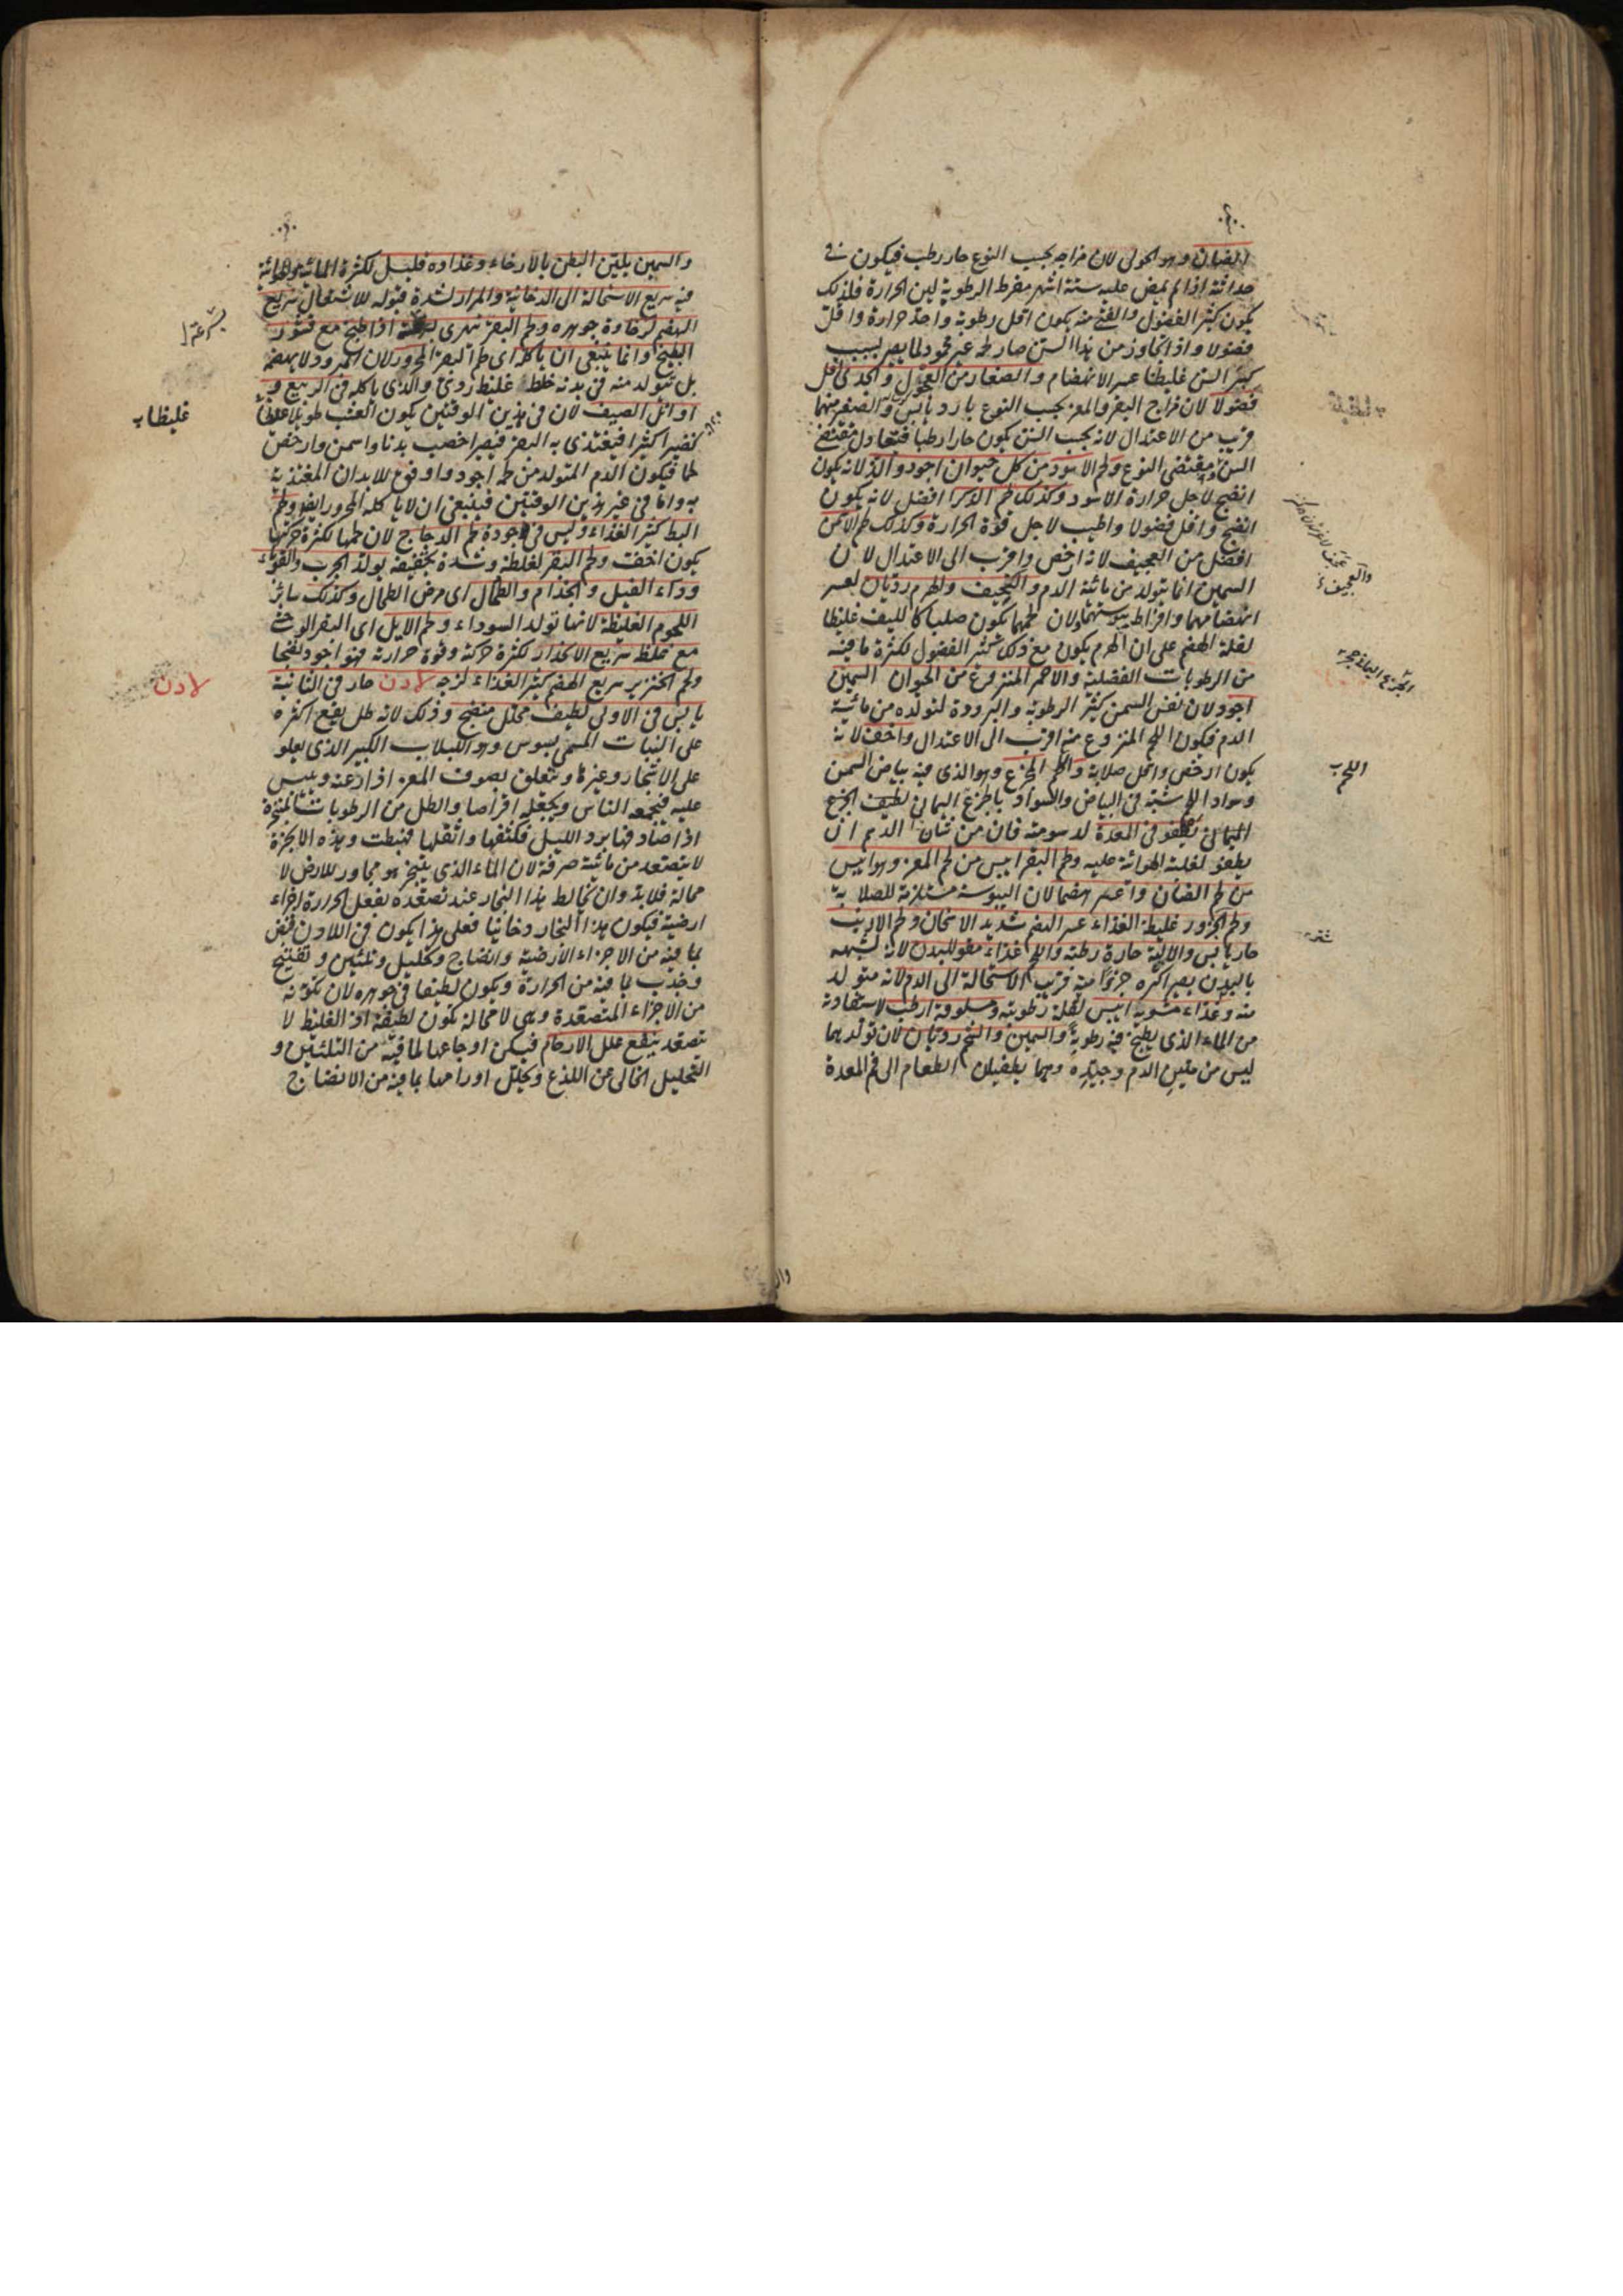 الضان وهو الحولى لان مزاجه بحسب النوع حار رطب فيكون فى
حداثته اذا لم يمض عليه ستة اشهر مفرط الرطوبة لين الحرارة فلذلك
يكون كثير الفضول والفتى منه يكون اقل رطوبة واحد حرارة واقل
فضولا واذا تجاوز من هذا السن صار لحمه غير محمود لما يصير بسبب
كبر السن غليظا عسر الانهضام والصغار من العجول والجدى اقل
فضولا لان مزاج البقر والمعز بحسب النوع بارد يابس والصغير منهما
قريب من الاعتدال لانه بحسب السن يكون حارا رطبا فيتعادل مقتضى
السن ومقتضى النوع ولحم الاسود من كل حيوان اجود والذ لانه يكون
انضج لاجل حرارة الاسود وكذلك لحم الذكر افضل لانه يكون
انضج واقل فضولا واطيب لاجل قوة الحرارة وكذلك لحم الاسمن
افضل من العجيف لانه ارخص واقرب الى الاعتدال لان
السمين انما يتولد من مائية الدم والعجيف والهرم رديان لعسر
انهضامهما وافراط يبوستهما ولان لحمهما يكون صلبا كالليف غليظا
لقلة الهضم على ان الهرم يكون مع ذلك كثير الفضول لكثرة ما فيه
من الرطوبات الفضلية والاحمر المنزوع من الحيوان السمين
اجود لان نفس السمن كثير الرطوبة والبرودة لتولده من مائية
الدم فيكون اللحم المنزوع منه اقرب الى الاعتدال واخف لانه
يكون ارخص واقل صلابة واللحم المجزع وهو الذى فيه بياض السمن
وسواد اللحم شبه فى البياض والسواد بالجزع اليمانى لطيف الجزع
اليمانى يطفو فى المعدة لدسومته فان من شان الدسم ان
يطفو لغلبة الهوائية عليه ولحم البقر ايبس من لحم المعز وهو ايبس
من لحم الضان واعسر هضما لان اليبوسة مستلزمة للصلابة
ولحم الجزور غليظ الغذاء عسر الهضم شديد الاسخان ولحم الارنب
حار يابس والالية حارة رطبة واللحم غذاء مقو للبدن لانه لشبهه
بالبدن يصير اكثره جزؤا منه قريب الاستحالة الى الدم لانه متولد
منه وغذاء مشويه ايبس لقلة رطوبته ومسلوقه ارطب لاستفادته
من الماء الذى يطبخ فيه رطوبة والسمين والشحم رديان لان تولدهما
ليس من متين الدم وجيده وهما يطفيان الطعام الى فم المعدة
اللحم
والسمين يلين البطن بالارخاء وغذاوه قليل لكثرة المائية والهوائية
فيه سريع الاستحالة الى الدخانية والمرار لشدة قبوله للاشتعال سريع
الهضم لرخاوة جوهره ولحم البقر يتهرى بسرعة اذا طبخ مع قشور
البطيخ وانما ينبغى ان ياكله اى لحم البقر المحرور لان المبرود لا يهضمه
بل يتولد منه فى بدنه خلط غليظ ردى والذى ياكله فى الربيع و
اوائل الصيف لان فى هذين الوقتين يكون العشب طويلا
نضيرا كثيرا فيغتذى به البقر فيصير اخصب بدنا واسمن وارخص
لحما فيكون الدم المتولد من لحمه اجود واوفق للابدان المغتذية
به واما فى غير هذين الوقتين فينبغى ان لا ياكله المحرور ايضا ولحم
البط كثير الغذاء وليس فى جودة لحم الدجاج لان لحمها لكثرة حركتها
يكون اخف ولحم البقر لغلظه وشدة تجفيفه يولد الجرب والقوباء
وداء الفيل والجذام والطحال اى مرض الطحال وكذلك سائر
اللحوم الغليظة لانها تولد السوداء ولحم الايل اى البقر الوحش
مع غلظه سريع الانحدار لكثرة حركته وقوة حرارته فهو اجود نضجا
ولحم الخنزير سريع الهضم كثير الغذاء لزج لادن حار فى الثانية
يابس فى الاولى لطيف محلل منضج وذلك لانه طل يقع اكثره
على النبات المسمى بسوس وهو اللبلاب الكبير الذى يعلو
على الاشجار وغيرها ويتعلق بصوف المعز اذا رعته ويلبس
عليه فيجمعه الناس ويجعله اقراصا والطل من الرطوبات المتبخرة
اذا صادفها برد الليل فكثفها واثقلها فهبطت وهذه الابخرة
لا يتصعد من مائية صرفة لان الماء الذى يتبخر هو مجاور للارض لا
محالة فلا بد وان يخالط هذا البخار عند تصعده بفعل الحرارة اجزاء
ارضية فيكون هذا البخار دخانيا فعلى هذا يكون فى اللادن قبض
بما فيه من الاجزاء الارضية وانضاج وتحليل وتليين وتفتيح
وجذب بما فيه من الحرارة ويكون لطيفا فى جوهره لان تكونه
من الاجزاء المتصعدة وهى لا محالة تكون لطيفة اذ الغليظ لا
يتصعد ينفع علل الارحام فيسكن اوجاعها لما فيه من التليين و
التحليل الخالى عن اللذع ويحلل اورامها بما فيه من الانضاج
غليظا
لادن